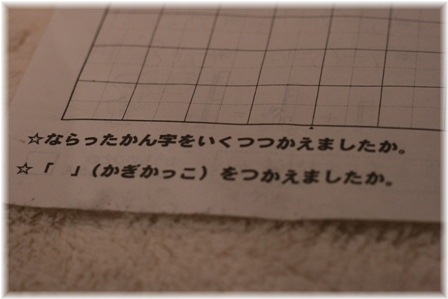 ☆ならったかん字をいくつつかえましたか。
☆「　」（かぎかっこ）をつかえましたか。